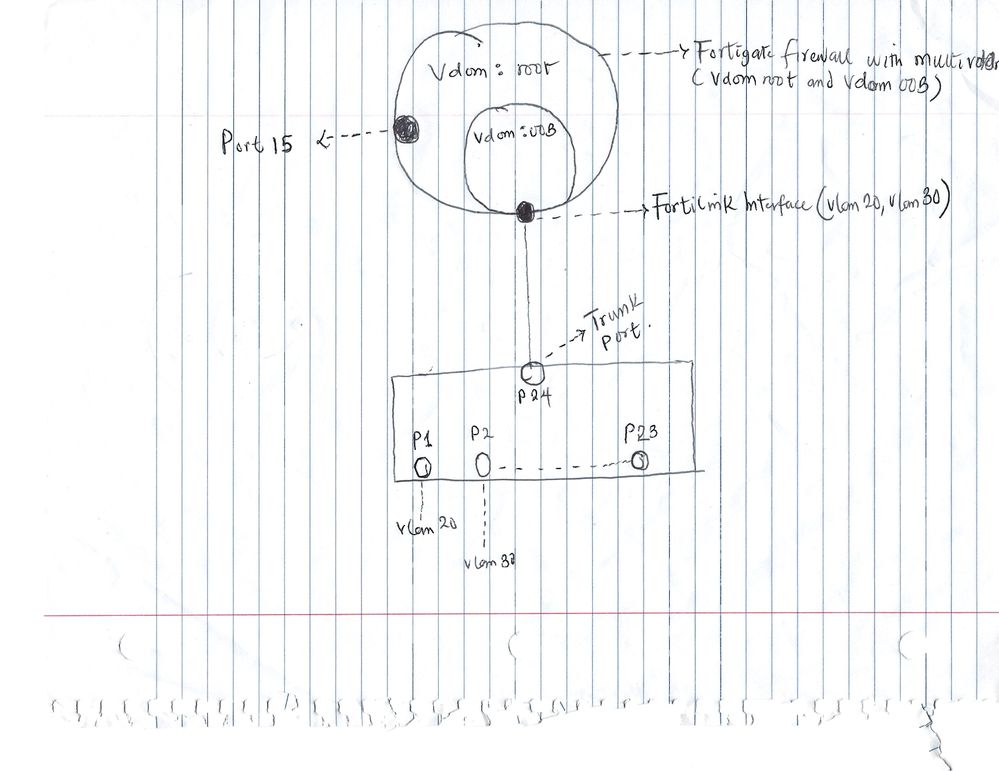 Vdom: root
Fortigate firewall with multi vdom
(Vdom root and Vdom OOB)
Vdom: OOB
Port 15
Fortilink Interface (vlan 20, vlan 30)
Trunk
Port.
P24
P1
P2
P23
vlan 20
vlan 30